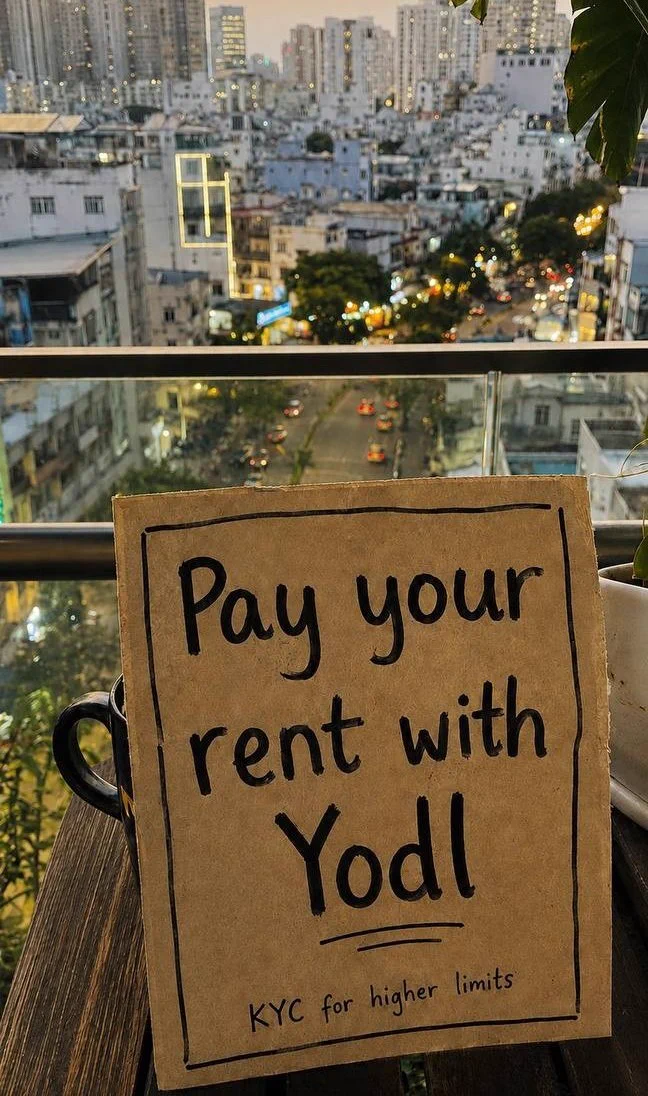 Pay your
rent with
Yodl
KYC for higher limits